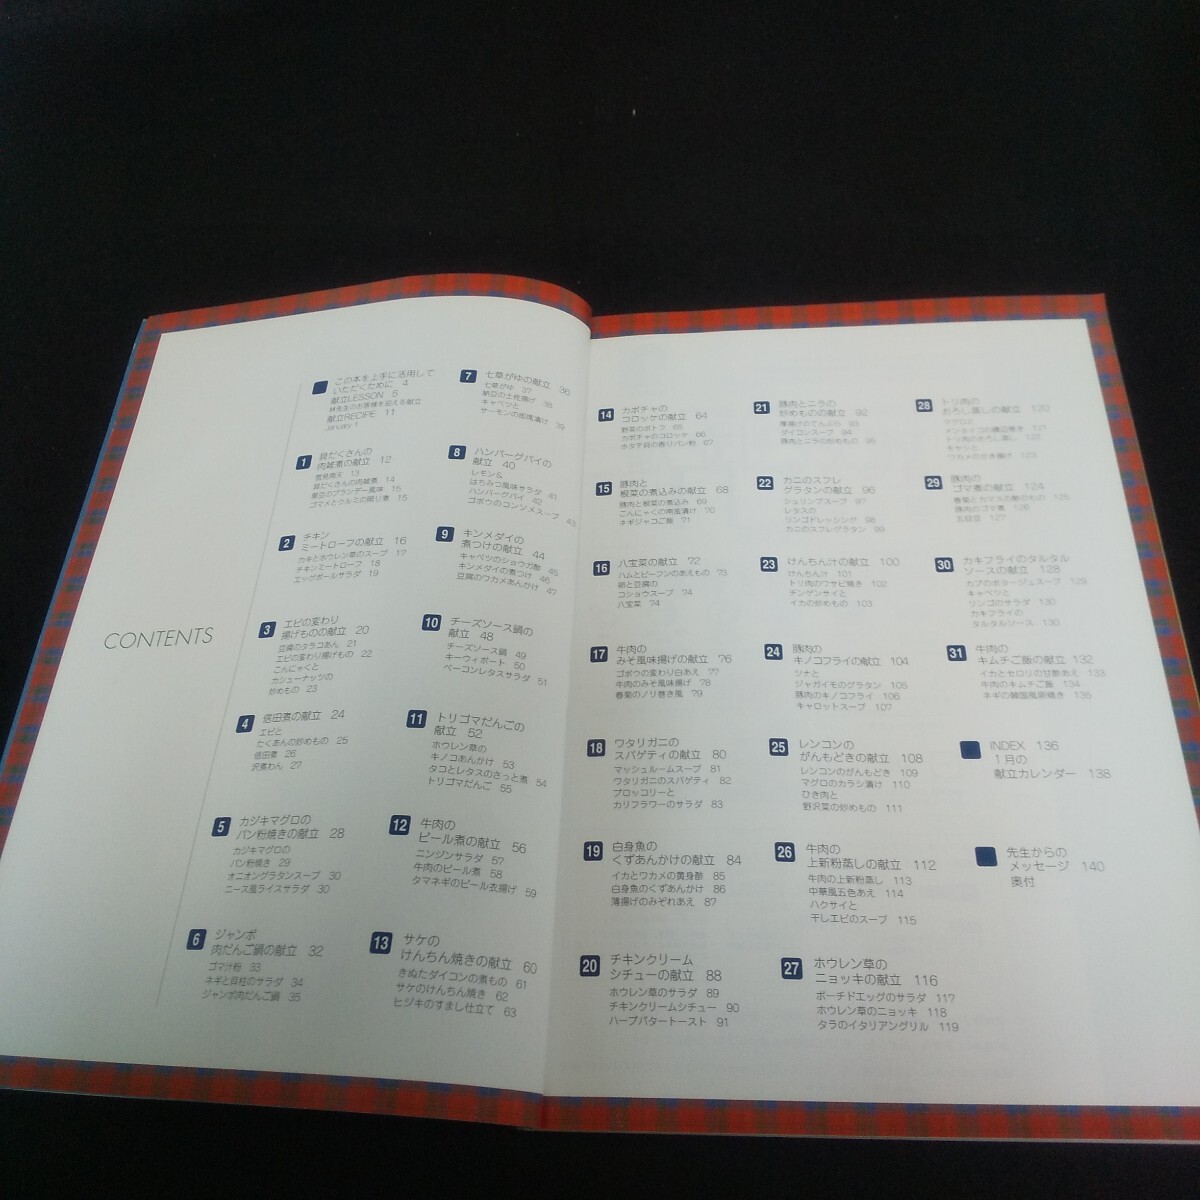 CONTENTS
この本を上手に活用して
いただくために 4
献立LESSON 5
献立RECIPE 11
January 1
1
具だくさんの
肉雑煮の献立 12
雪見雨天 13
具だくさんの肉雑煮 14
15
15
2
チキン
ミートローフの献立 16
カキとホウレン草のスープ 17
チキンミートローフ 18
エッグボールサラダ 19
3
エビの変わり
揚げものの献立 20
豆腐のタラコあん 21
エビの変わり揚げもの 22
こんにゃくと
カシューナッツの
炒めもの 23
4
信田煮の献立 24
エビと
たくあんの炒めもの 25
信田煮 26
沢煮わん 27
5
カジキマグロの
パン粉焼きの献立 28
カジキマグロの
パン粉焼き 29
オニオングラタンスープ 30
ニース風ライスサラダ 30
6
ジャンボ
肉だんご鍋の献立 32
ゴマ汁粉 33
ネギと貝柱のサラダ 34
ジャンボ肉だんご鍋 35
7
七草がゆの献立 36
七草がゆ 37
納豆の土佐揚げ 38
キャベツと
サーモンの即席漬け 39
8
ハンバーグパイの
献立 40
レモン&
はちみつ風味サラダ 41
ハンバーグパイ 42
ゴボウのコンソメスープ 43
9
キンメダイの
煮つけの献立 44
キャベツのショウガ酢 45
キンメダイの煮つけ 46
豆腐のワカメあんかけ 47
10
チーズソース鍋の
献立 48
チーズソース鍋 49
キーウィポート 50
ベーコンレタスサラダ 51
11
トリゴマだんごの
献立 52
ホウレン草の
キノコあんかけ 53
タコとレタスのさっと煮 54
トリゴマだんご 55
12
牛肉の
ビール煮の献立 56
ニンジンサラダ 57
牛肉のビール煮 58
タマネギのビール衣揚げ 59
13
サケの
けんちん焼きの献立 60
きぬたダイコンの煮もの 61
サケのけんちん焼き 62
ヒジキのすまし仕立て 63
14
カボチャの
コロッケの献立 64
野菜のポトフ 65
カボチャのコロッケ 66
ホタテ貝の香りパン粉 67
15
豚肉と
根菜の煮込みの献立 68
豚肉と根菜の煮込み 69
こんにゃくの南蛮漬け 70
ネギジャコご飯 71
16
八宝菜の献立 72
ハムとビーフンのあえもの 73
卵と豆腐の
コショウスープ 74
八宝菜 74
17
牛肉の
みそ風味揚げの献立 76
ゴボウの変わり白あえ 77
牛肉のみそ風味揚げ 78
春菊のノリ巻き風 79
18
ワタリガニの
スパゲティの献立 80
マッシュルームスープ 81
ワタリガニのスパゲティ 82
ブロッコリーと
カリフラワーのサラダ 83
19
白身魚の
くずあんかけの献立 84
イカとワカメの黄身酢 85
白身魚のくずあんかけ 86
薄揚げのみぞれあえ 87
20
チキンクリーム
シチューの献立 88
ホウレン草のサラダ 89
チキンクリームシチュー 90
ハーブバタートースト 91
21
豚肉とニラの
炒めものの献立 92
厚揚げのてんぷら 93
ダイコンスープ 94
豚肉とニラの炒めもの 95
22
カニのスフレ
グラタンの献立 96
シュリンプスープ 97
レタスの
リンゴドレッシング 98
カニのスフレグラタン 99
23
けんちん汁の献立 100
けんちん汁 101
トリ肉のワサビ焼き 102
チンゲンサイと
イカの炒めもの 103
24
豚肉の
キノコフライの献立 104
ツナと
ジャガイモのグラタン 105
豚肉のキノコフライ 106
キャロットスープ 107
25
レンコンの
がんもどきの献立 108
レンコンのがんもどき 109
マグロのカラシ漬け 110
ひき肉と
野沢菜の炒めもの 111
26
牛肉の
上新粉蒸しの献立 112
牛肉の上新粉蒸し 113
中華風五色あえ 114
ハクサイと
干しエビのスープ 115
27
ホウレン草の
ニョッキの献立 116
ポーチドエッグのサラダ 117
ホウレン草のニョッキ 118
タラのイタリアングリル 119
28
トリ肉の
おろし蒸しの献立 120
マグロと
メンタイコの磯辺巻き 121
トリ肉のおろし蒸し 122
キャシと
ワカメのかき揚げ 123
29
豚肉の
ゴマ煮の献立 124
春菊とカマスの酢のもの 125
豚肉のゴマ煮 126
五目豆 127
30
カキフライのタルタル
ソースの献立 128
カブのポタージュスープ 129
キャベツと
リンゴのサラダ 130
カキフライの
タルタルソース 130
31
牛肉の
キムチご飯の献立 132
イカとセロリの甘酢あえ 133
牛肉のキムチご飯 134
ネギの韓国風卵焼き 135
INDEX 136
1月の
献立カレンダー 138
先生からの
メッセージ 140
奥付